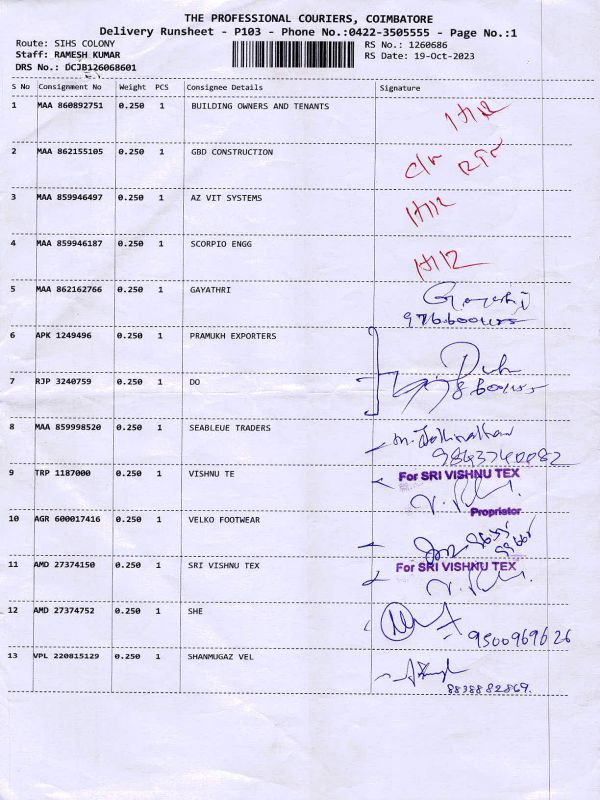 THE PROFESSIONAL COURIERS, COIMBATORE
Delivery Runsheet - P103 - Phone No.:0422-3505555 - Page No.:1
Route: SIHS COLONY RS No.: 1260686
Staff: RAMESH KUMAR RS Date: 19-Oct-2023
DRS No.: DCJB126068601
S No Consignment No Weight PCS Consignee Details Signature
1 MAA 860892751 0.250 1 BUILDING OWNERS AND TENANTS
2 MAA 862155105 0.250 1 GBD CONSTRUCTION
3 MAA 859946497 0.250 1 AZ VIT SYSTEMS
4 MAA 859946187 0.250 1 SCORPIO ENGG
5 MAA 862162766 0.250 1 GAYATHRI
6 APK 1249496 0.250 1 PRAMUKH EXPORTERS
7 RJP 3240759 0.250 1 DO
8 MAA 859998520 0.250 1 SEABLEUE TRADERS
9843740082
9 TRP 1187000 0.250 1 VISHNU TE For SRI VISHNU TEX
Proprietor
10 AGR 600017416 0.250 1 VELKO FOOTWEAR
11 AMD 27374150 0.250 1 SRI VISHNU TEX For SRI VISHNU TEX
12 AMD 27374752 0.250 1 SHE
9500969626
13 VPL 220815129 0.250 1 SHANMUGAZ VEL
8838882869.